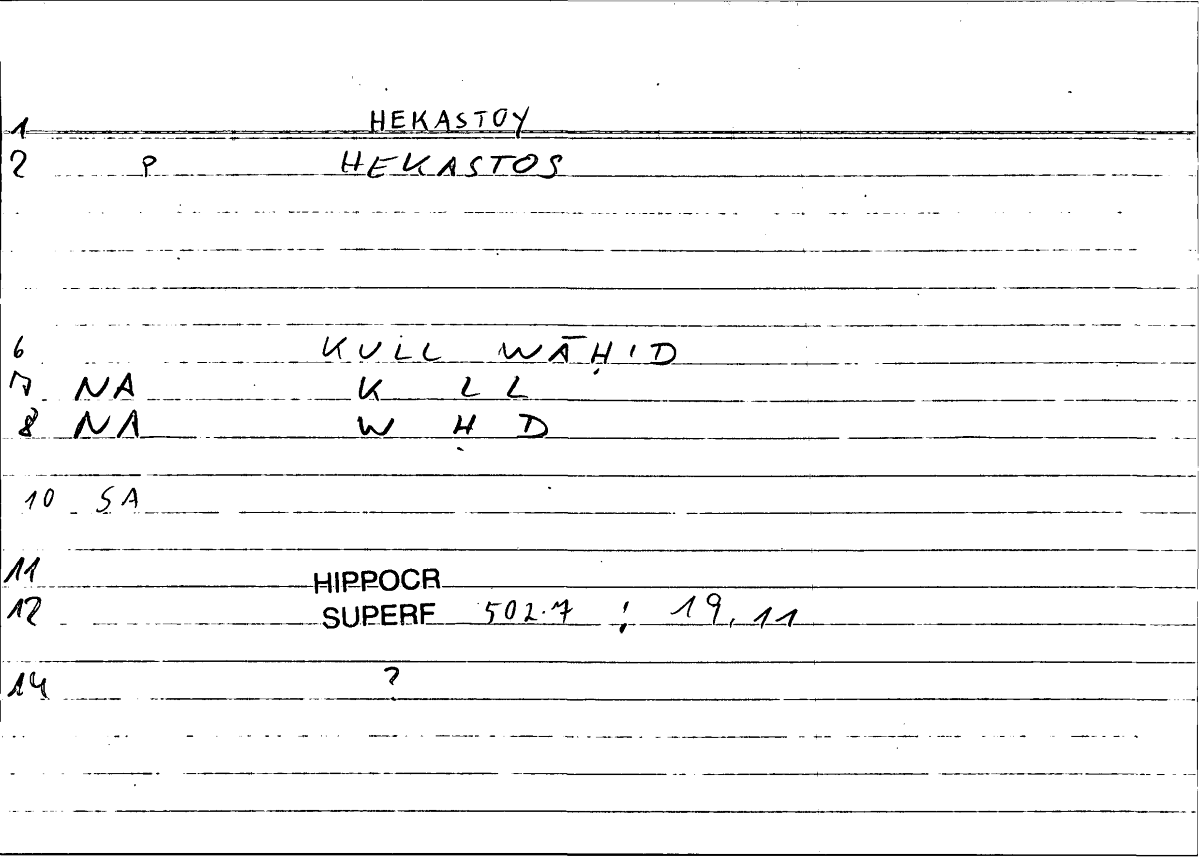 1 HEKASTOY
2 P HEKASTOS
6 KULL WĀḤID
7 NA K L L
8 NA W Ḥ D
10 SA
11 HIPPOCR
12 SUPERF 502.7 ; 19,11
14 ?